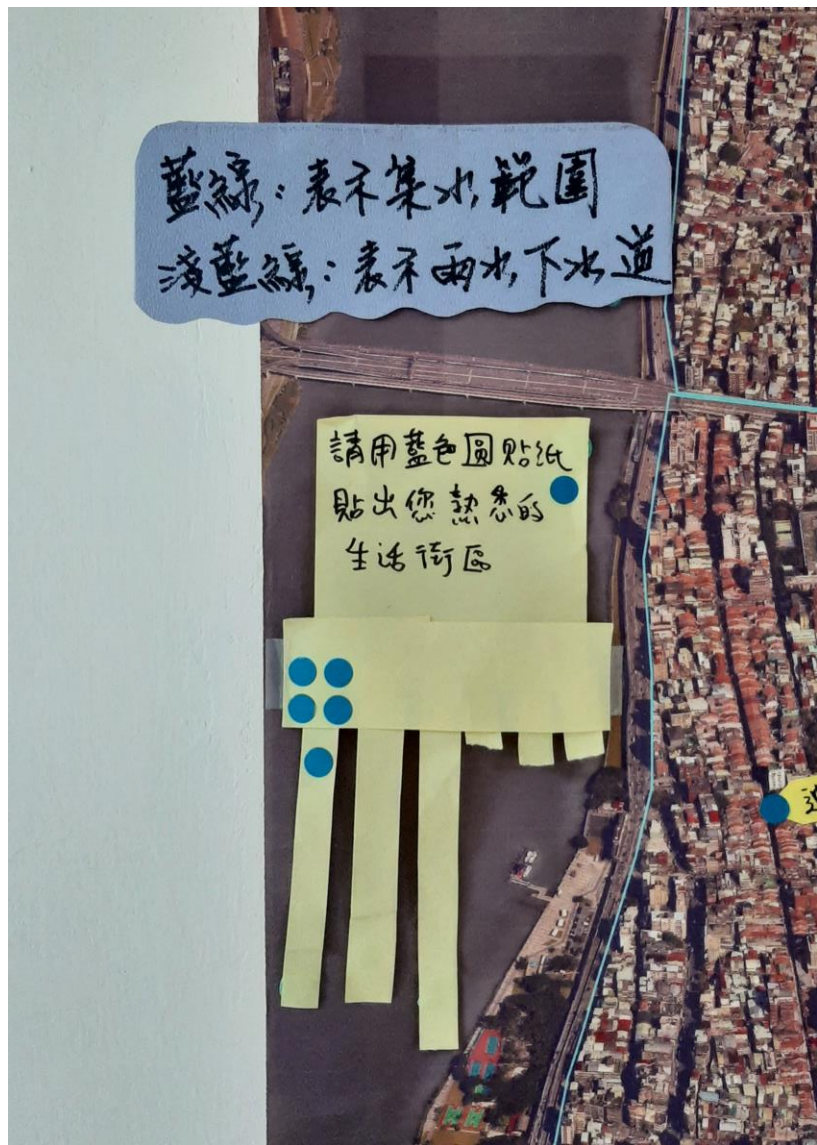 藍線：表示集水範圍
淺藍線：表示雨水下水道
請用藍色圓貼紙
貼出您熟悉的
生活街區